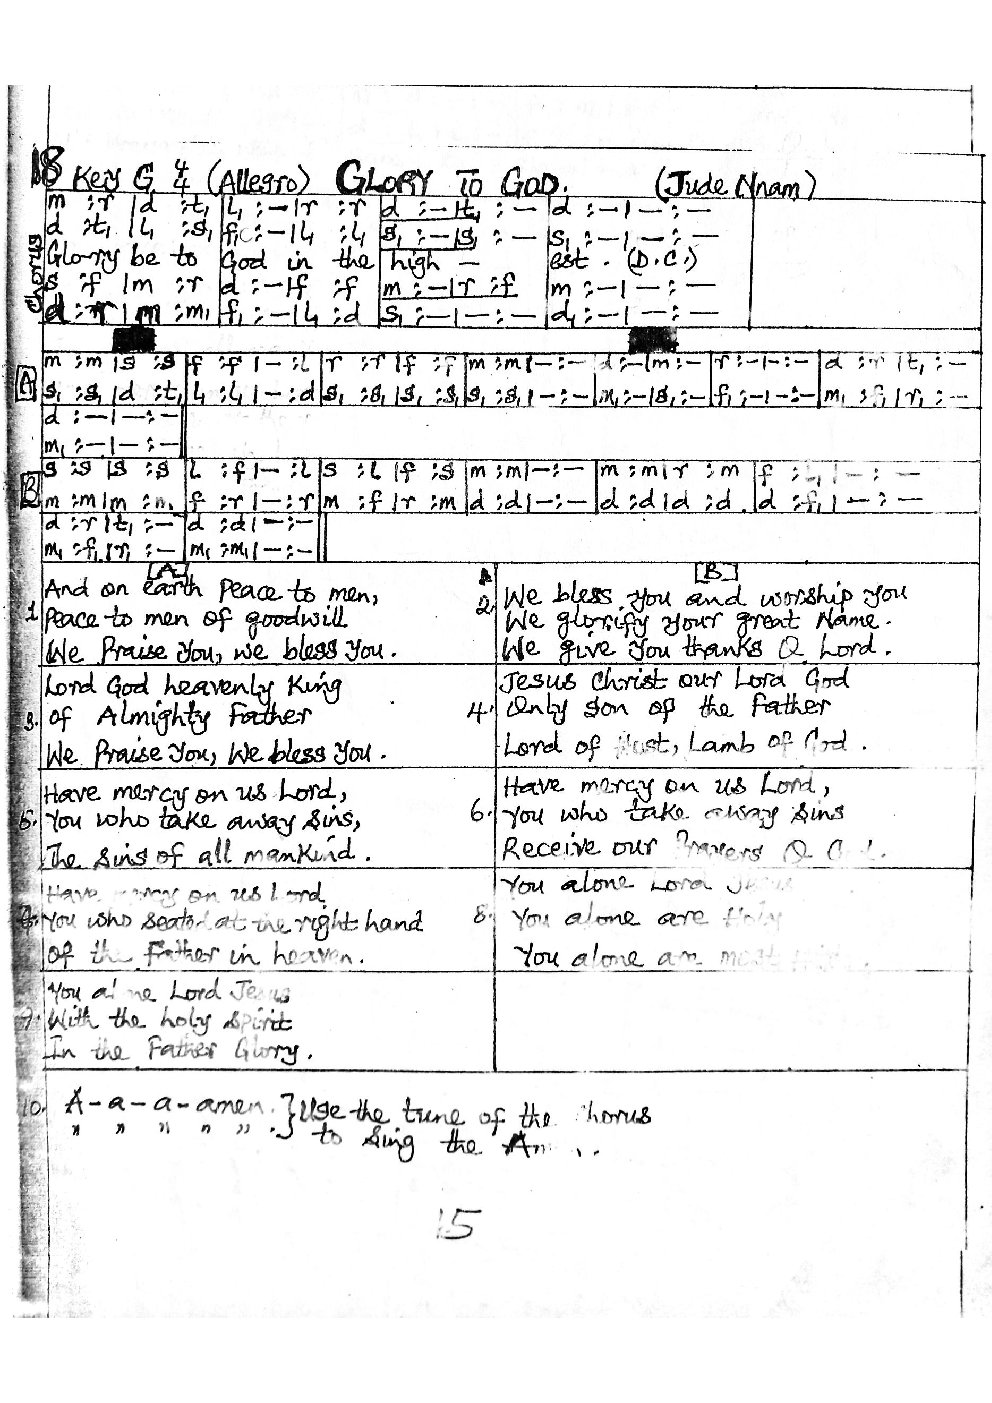 18 Key G 4/4 (Allegro) GLORY TO GOD. (Jude Nnam)
Chorus
m :r |d :t₁ |l₁ :-|r :r |d :-|t₁ :- |d :-|-:-
d :t₁ |l₁ :s₁ |f₁ :-|l₁ :l₁ |s₁ :-|s₁ :- |s₁ :-|-:-
Glo-rry be to God in the high - est. (D.C.)
s :f |m :r |d :-|f :f |m :-|r :f |m :-|-:-
d :r |m :m₁ |f₁ :-|l₁ :d |s₁ :-|-:- |d₁ :-|-:-
A
m :m |s :s |f :f |-:l |r :r |f :f |m :m|-:- |d :-|m :- |r :-|-:- |d :r |t₁ :-
s₁ :s₁ |d :t₁ |l₁ :l₁ |-:d |s₁ :s₁ |s₁ :s₁ |s₁ :s₁ |-:- |m₁ :-|s₁ :- |f₁ :-|-:- |m₁ :f₁ |r₁ :-
d :-|-:-
m₁ :-|-:-
B
s :s |s :s |l :f |-:l |s :l |f :s |m :m|-:- |m :m|r :m |f :l₁ |-:-
m :m |m :m |f :r |-:r |m :f |r :m |d :d |-:- |d :d |d :d |d :f₁ |-:-
d :r |t₁ :- |d :d |-:-
m₁ :f₁ |r₁ :- |m₁ :m₁ |-:-
[A]
1 And on earth Peace to men,
Peace to men of goodwill
We Praise You, we bless You.
[B]
2. We bless You and worship You
We glorify your great Name.
We give You thanks O Lord.
3. Lord God heavenly King
of Almighty Father
We Praise You, We bless You.
4. Jesus Christ our Lord God
Only Son of the Father
Lord of Host, Lamb of God.
5. Have mercy on us Lord,
You who take away Sins,
The Sins of all manKind.
6. Have mercy on us Lord,
You who take away Sins
Receive our Prayers O God.
Have mercy on us Lord
You who seated at the right hand
of the Father in heaven.
8. You alone Lord Jesus
You alone are Holy
You alone are most
You alone Lord Jesus
With the holy Spirit
In the Father Glory.
10. A-a-a-amen. } Use the tune of the Chorus
" " " " " . to Sing the
15